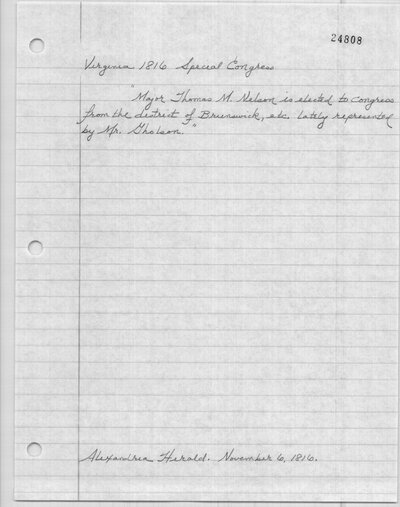 24808
Virginia 1816 Special Congress
"Major Thomas M. Nelson is elected to Congress
from the district of Brunswick, etc. lately represented
by Mr. Gholson."
Alexandria Herald. November 6, 1816.